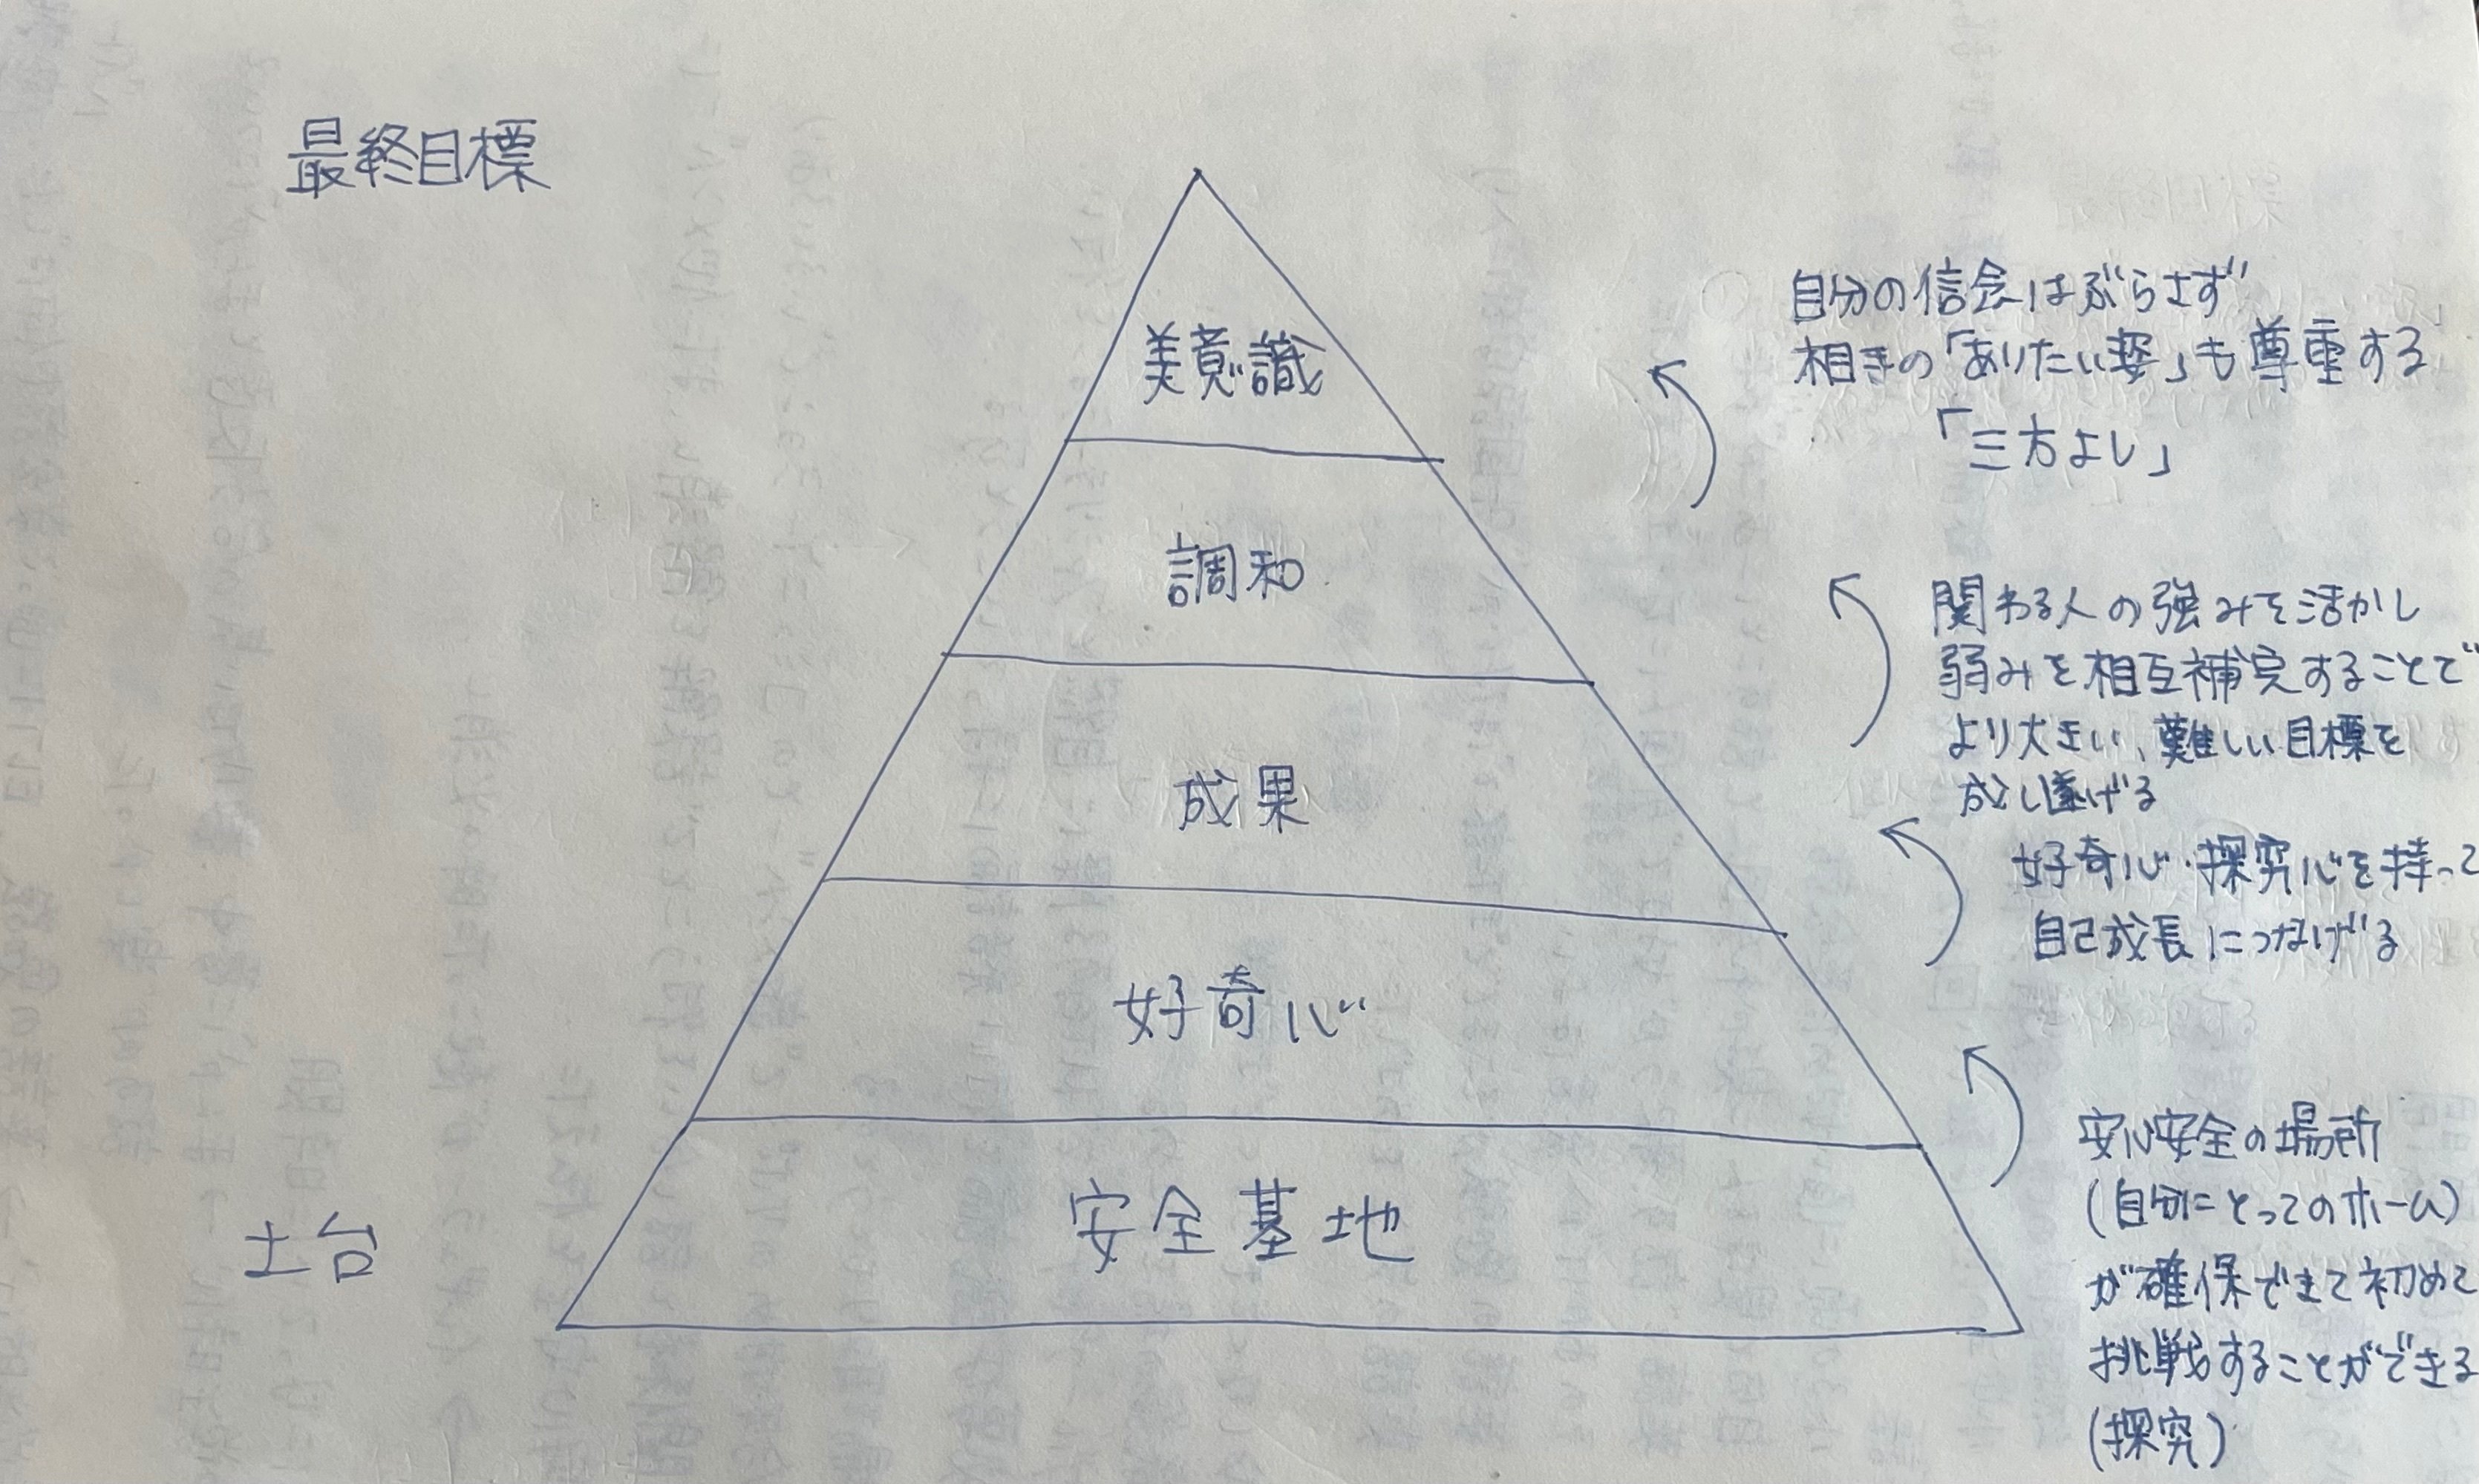 最終目標
美意識
調和
成果
好奇心
安全基地
土台
自分の信念はぶらさず
相手の「ありたい姿」も尊重する
「三方よし」
関わる人の強みを活かし
弱みを相互補完することで
より大きい、難しい目標を
成し遂げる
好奇心・探究心を持って
自己成長につなげる
安心安全の場所
(自分にとってのホーム)
が確保できて初めて
挑戦することができる
(探究)